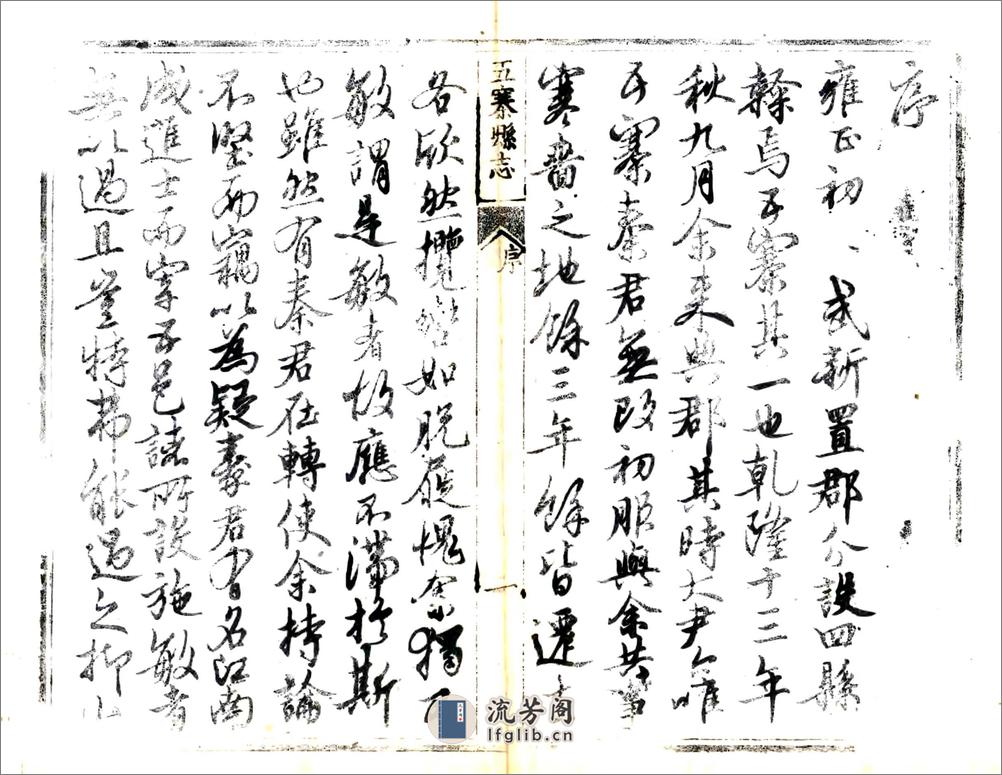 序
雍正初、武新置郡分設四縣
幹焉五寨其一也乾隆十三年
秋九月余來典郡其時大尹令唯
五寨秦君無改初服與余共事
寒嗇之地餘三年餘皆遷去
五寨縣志
序
一
各欣然攬轡如脫屣愧余獨不
敏謂是敏者故應不滯於斯
也雖然有秦君在轉使余持論
不堅而竊以為疑秦君有名江南
成進士而宰五邑諸所設施敏者
無以過且豈特弗能過之抑
流芳阁
lfglib.cn